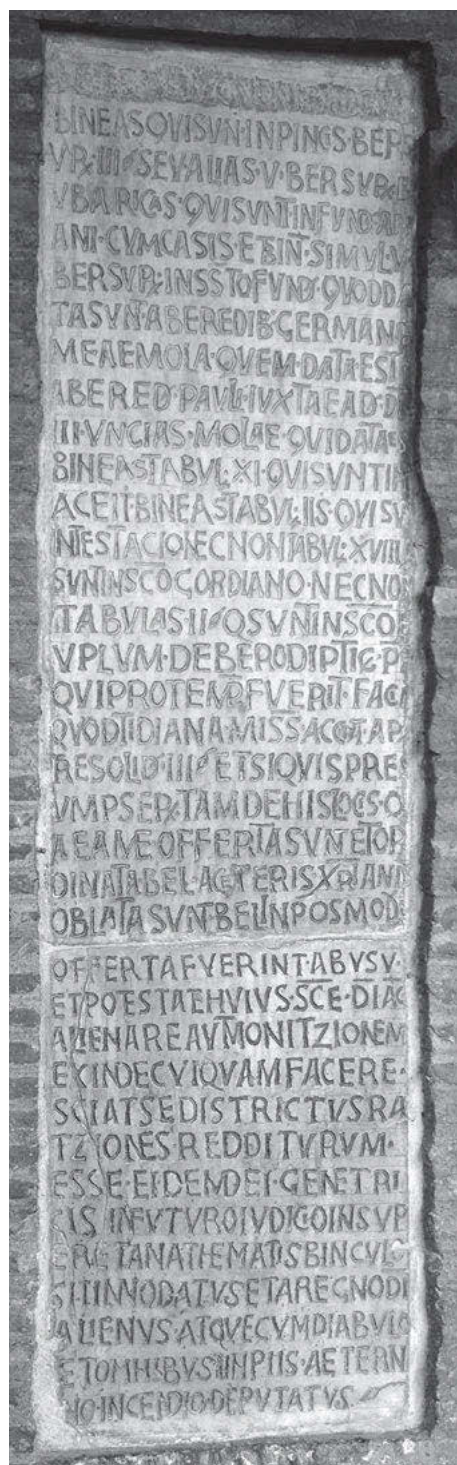 BINEASQVISVNT·INPINCIS·BEP
VR·III SEVALIAS·V·BERSVR·
VBARICAS·QVISVNT·INFVND·
ANI·CVMCASIS·ETBIN·SIMVL·V
BERSVR·INSSTOFVND·QVODDA
TASVNT·ABEREDIB·GERMAN
MEAEMOLA·QVEM·DATA·EST
ABERED·PAVLI·IVXTAEAD·D
III·VNCIAS·MOLAE·QVIDATAE
BINEASTABVL·XI·QVISVNTIN
ACEII·BINEASTABVL·IIS·QVISV
NTESTACIONECNONTABVL·XVIIII
SVNTINSCOCORDIANO·NECNON
TABVLAS·II QSVNTINSCO
VPLVM·DEBERODIPTIC·P
QVIPROTEMP·FVERIT·FACI
QVODTIDIANA·MISSACOT·AP
RESOLID·III ETSIQVISPRE
VMPSER·TAMDEHISLOCS·Q
AEAMEOFFERTASVNTETOR
DINATABEL·ACETERISXPIANI
OBLATASVNTBELINPOSMOD
OFFERTAFVERINT·ABVSV·
ETPOTESTATEHVIVS·SCE·DIAC
ALIENAREAVTMONITZIONEM
EXINDECVIQVAMFACERE·
SCIATSEDISTRICTVSRA
TZIONESREDDITVRVM·
ESSE·EIDEMDEI·GENETRI
CIS INFVTVROIVDICOINSVP
ERETANATHEMATISBINCVL
SITINNODATVSETAREGNODI
ALIENVS·ATQVECVMDIABVLO
ETOMNIBVSIINPIIS·AETERN
NO·INCENDIO·DEPVTATVS·